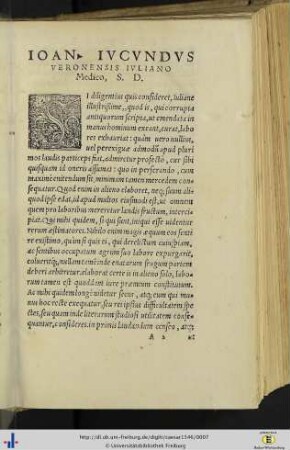 IOAN. IVCVNDVS
VERONENSIS IVLIANO
Medico, S. D.
I diligentius quis consideret, iuliane
illustrissime, quod is, qui corrupta
antiquorum scripta, ut emendata in
manus hominum exeant, curat, labo
res exhauriat: quàm uero nullius,
uel perexiguæ admodū apud pluri
mos laudis particeps fiat, admiretur profecto, cur sibi
quisquam id oneris assumat: quo in perferendo, cum
maximi intendendi sit, minimam tamen mercedem con
sequatur. Quod enim in alieno elaboret, neq; suum ali-
quod ipse edat, id apud multos eiusmodi est, ut omnem
quem pro laboribus mereretur laudis fructum, interci
piat. Qui mihi quidem, si qui sunt, iniqui esse uidentur
rerum æstimatores. Nihilo enim magis æquum eos sentire
existimo, quàm si quis ei, qui
derelictum
ac sentibus occupatum agrum suo labore expurgarit,
colueritq;, nullam tamen inde enatarum frugum partem
deberi arbitretur. elaborat certe is in alieno solo, labo
rum tamen est quoddam iure præmium constitutum.
Ac mihi quidem longè uidetur secus, atq; eum qui ma
nus hoc recte exequatur, seu rei ipsius difficultatem spe
ctes, seu quam inde literarum studiosi utilitatem conse-
quantur, consideres, in primis laudandum censeo, atq;
A 2 ut
http://dl.ub.uni-freiburg.de/diglit/caesar1546/0007
© Universitätsbibliothek Freiburg